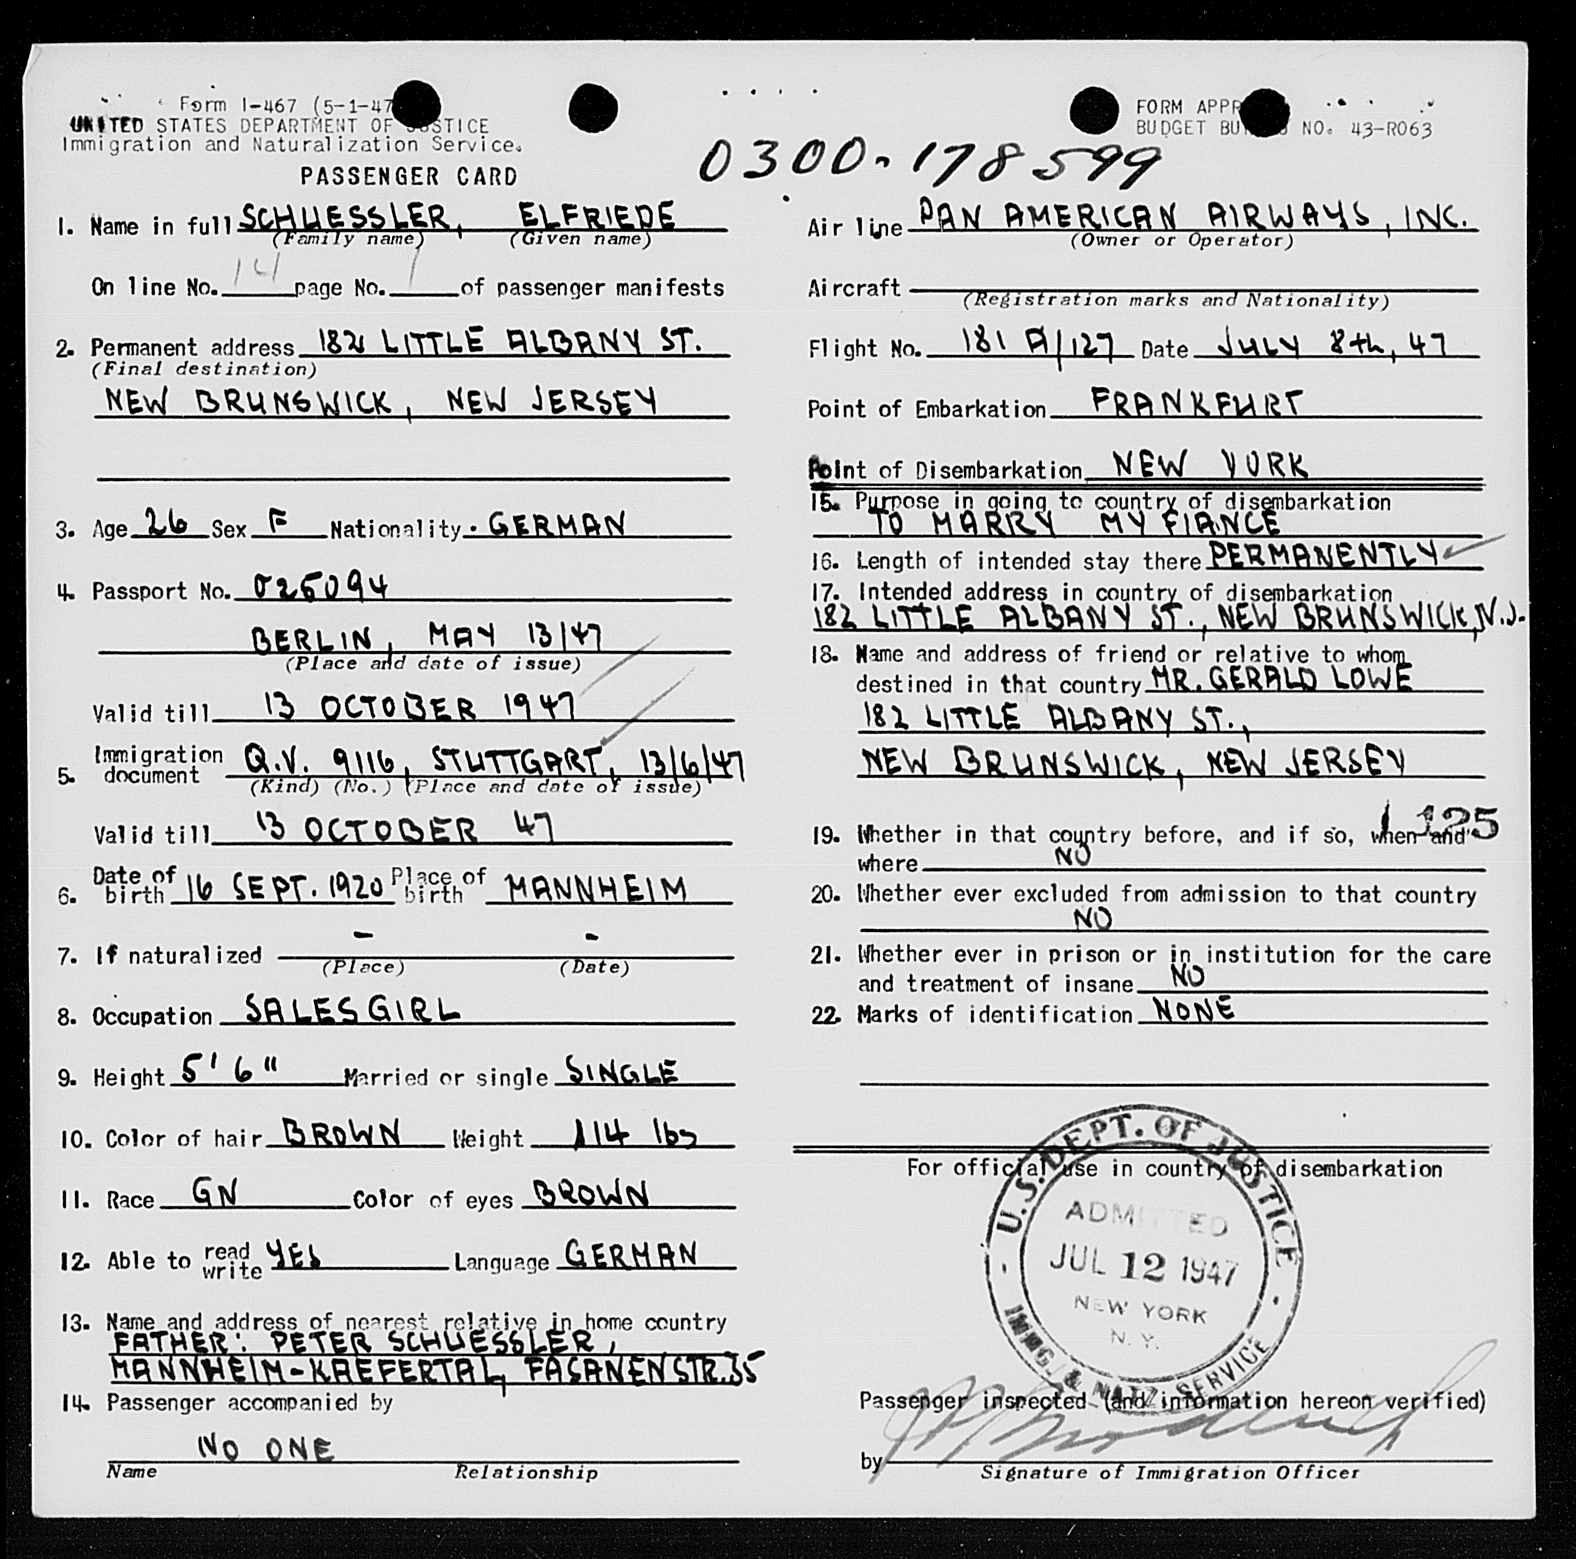 Form I-467 (5-1-47
UNITED STATES DEPARTMENT OF JUSTICE
Immigration and Naturalization Service.
PASSENGER CARD
FORM APPR
BUDGET BU NO. 43-R063
0300-178599
1. Name in full SCHUESSLER, ELFRIEDE
(Family name) (Given name)
On line No. 14 page No. 1 of passenger manifests
2. Permanent address 182 LITTLE ALBANY ST.
(Final destination)
NEW BRUNSWICK, NEW JERSEY
3. Age 26 Sex F Nationality. GERMAN
4. Passport No. 025094
BERLIN, MAY 13/47
(Place and date of issue)
Valid till 13 OCTOBER 1947
5. Immigration document Q.V. 9116, STUTTGART, 13/6/47
(Kind) (No.) (Place and date of issue)
Valid till 13 OCTOBER 47
6. Date of birth 16 SEPT. 1920 Place of birth MANNHEIM
7. If naturalized - -
(Place) (Date)
8. Occupation SALESGIRL
9. Height 5' 6" Married or single SINGLE
10. Color of hair BROWN Weight 114 lbs
11. Race GN Color of eyes BROWN
12. Able to read write YES Language GERMAN
13. Name and address of nearest relative in home country
FATHER: PETER SCHUESSLER,
MANNHEIM-KAEFERTAL, FASANENSTR. 35
14. Passenger accompanied by
NO ONE
Name Relationship
Air line PAN AMERICAN AIRWAYS, INC.
(Owner or Operator)
Aircraft
(Registration marks and Nationality)
Flight No. 181 A/127 Date JULY 8th, 47
Point of Embarkation FRANKFURT
Point of Disembarkation NEW YORK
15. Purpose in going to country of disembarkation
TO MARRY MY FIANCE
16. Length of intended stay there PERMANENTLY
17. Intended address in country of disembarkation
182 LITTLE ALBANY ST., NEW BRUNSWICK, N.J.
18. Name and address of friend or relative to whom
destined in that country MR. GERALD LOWE
182 LITTLE ALBANY ST.,
NEW BRUNSWICK, NEW JERSEY
1 125
19. Whether in that country before, and if so, when and
where NO
20. Whether ever excluded from admission to that country
NO
21. Whether ever in prison or in institution for the care
and treatment of insane NO
22. Marks of identification NONE
For official use in country of disembarkation
U.S. DEPT. OF JUSTICE
ADMITTED
JUL 12 1947
NEW YORK
N.Y.
IMMG. & NATZ. SERVICE
Passenger inspected (and information hereon verified)
by
Signature of Immigration Officer